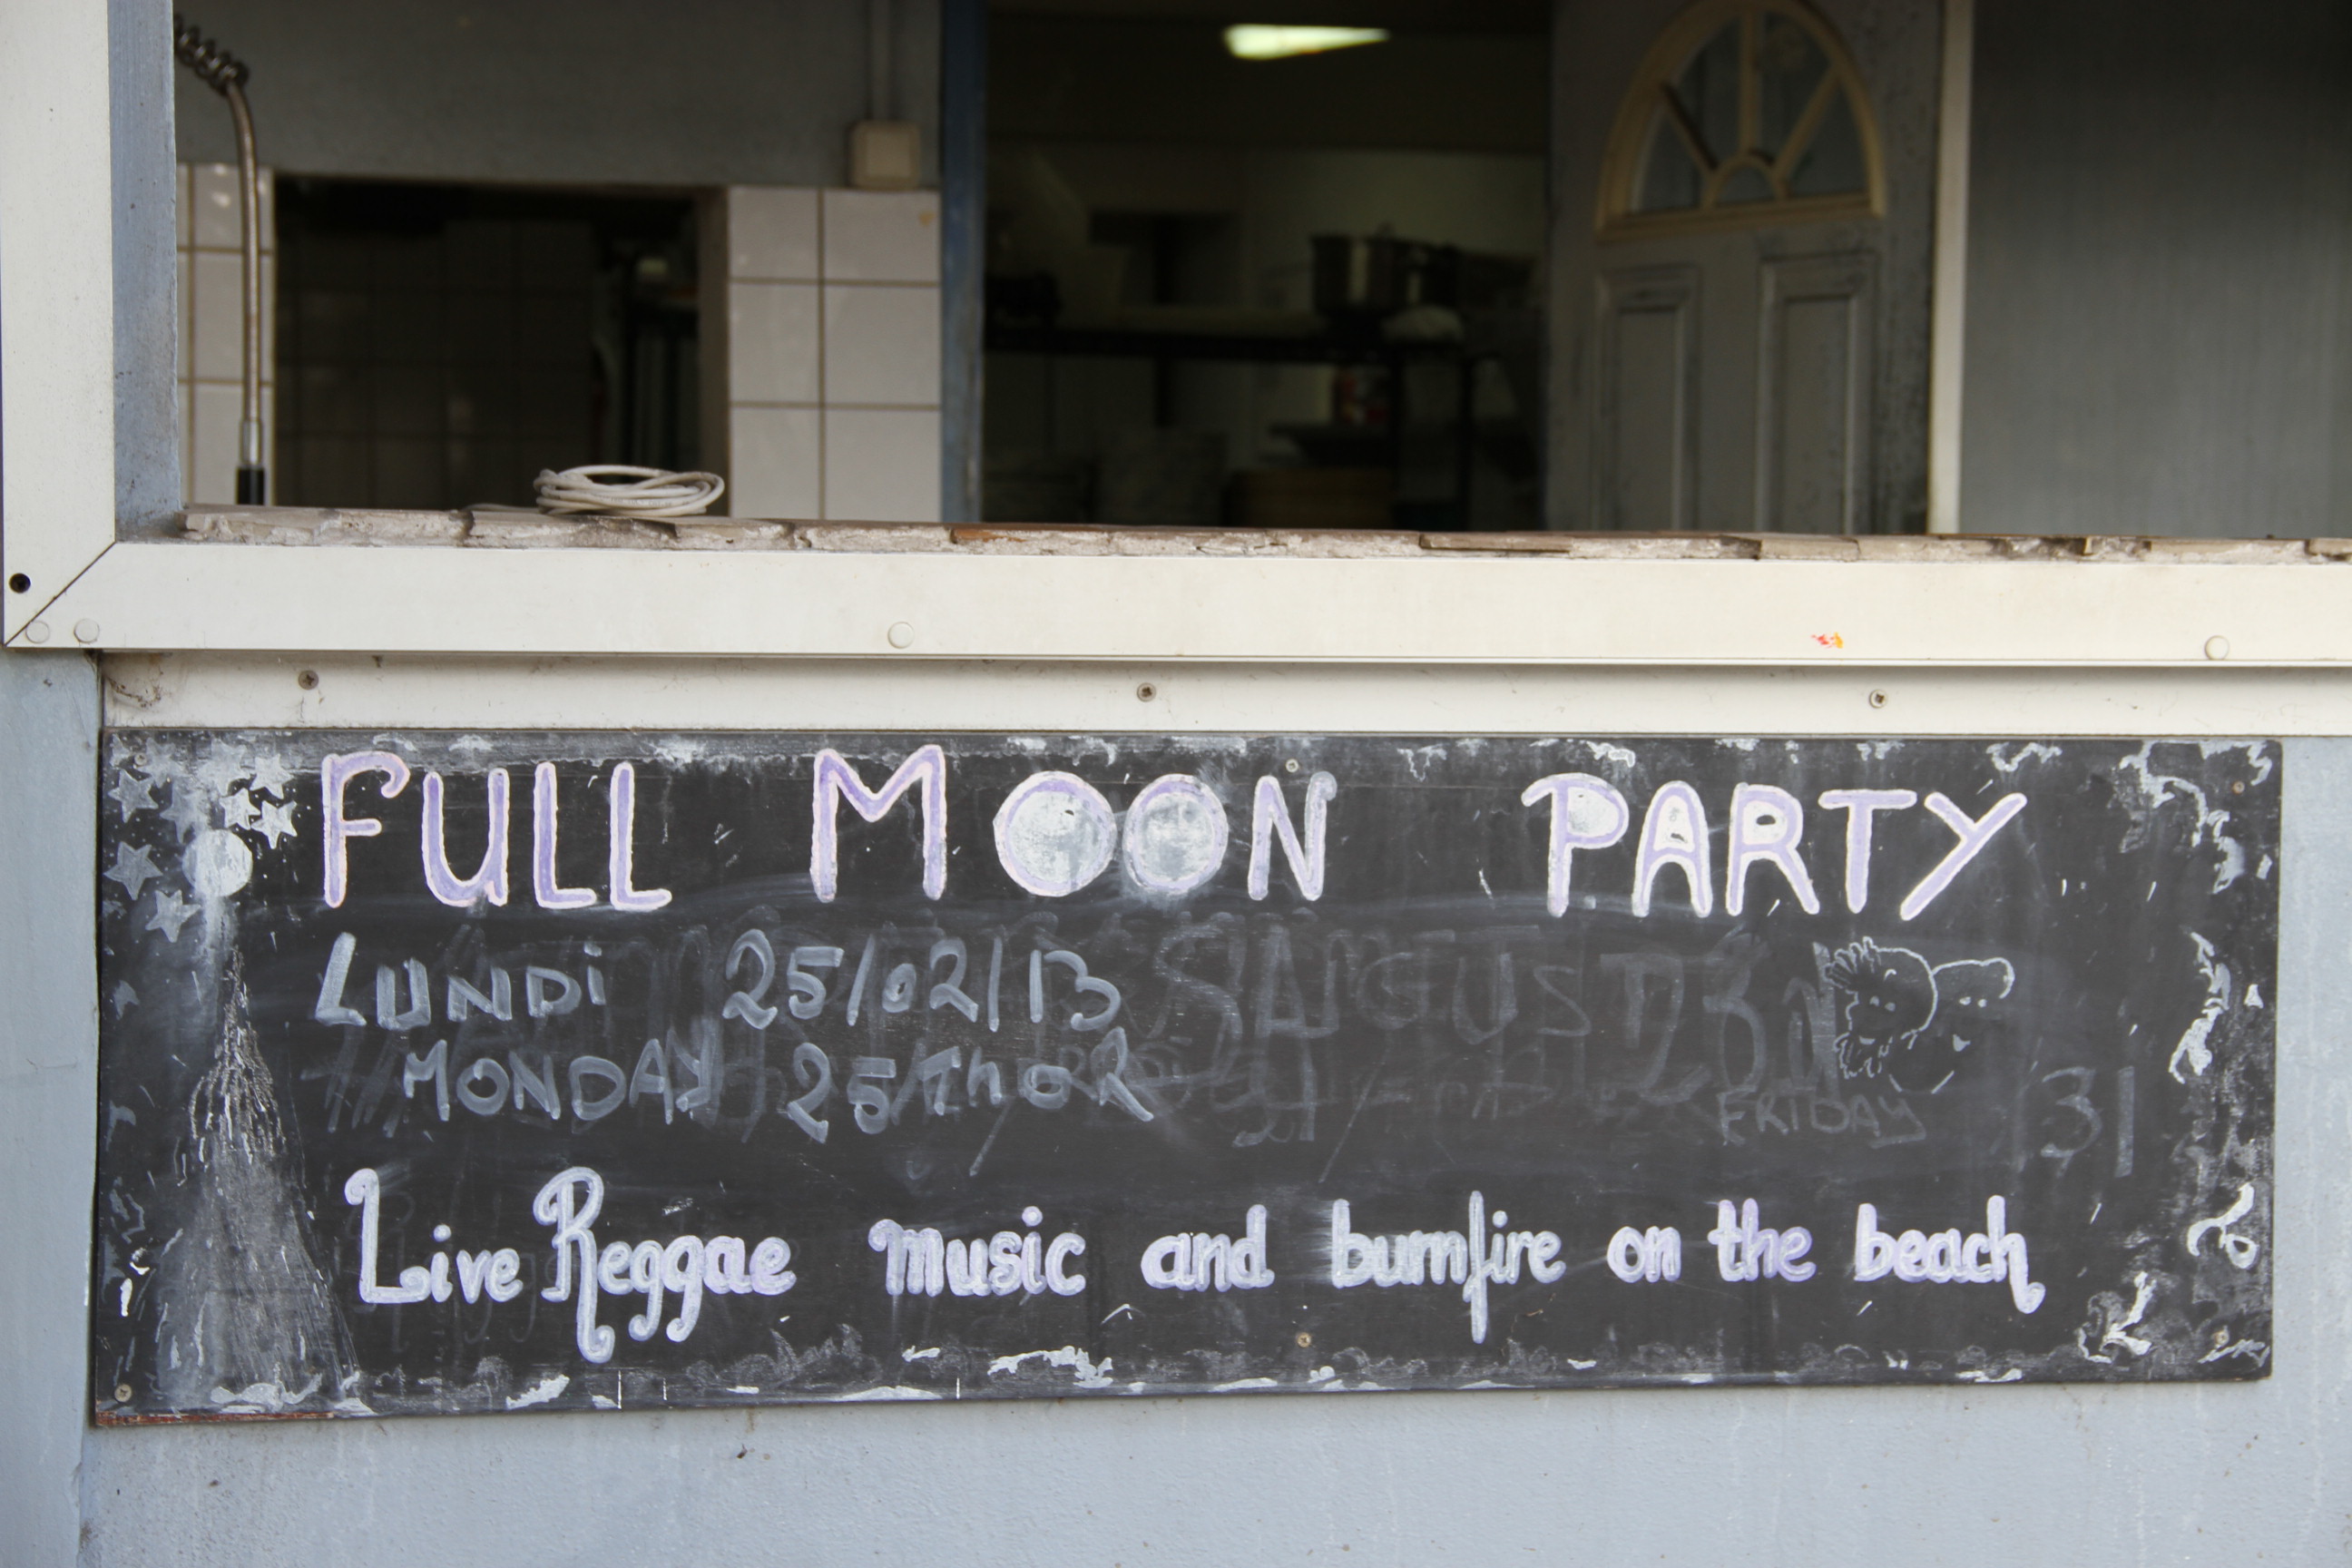 FULL MOON PARTY
LUNDI 25/02/13
MONDAY 25/Th 02
FRIDAY 31
Live Reggae music and burnfire on the beach